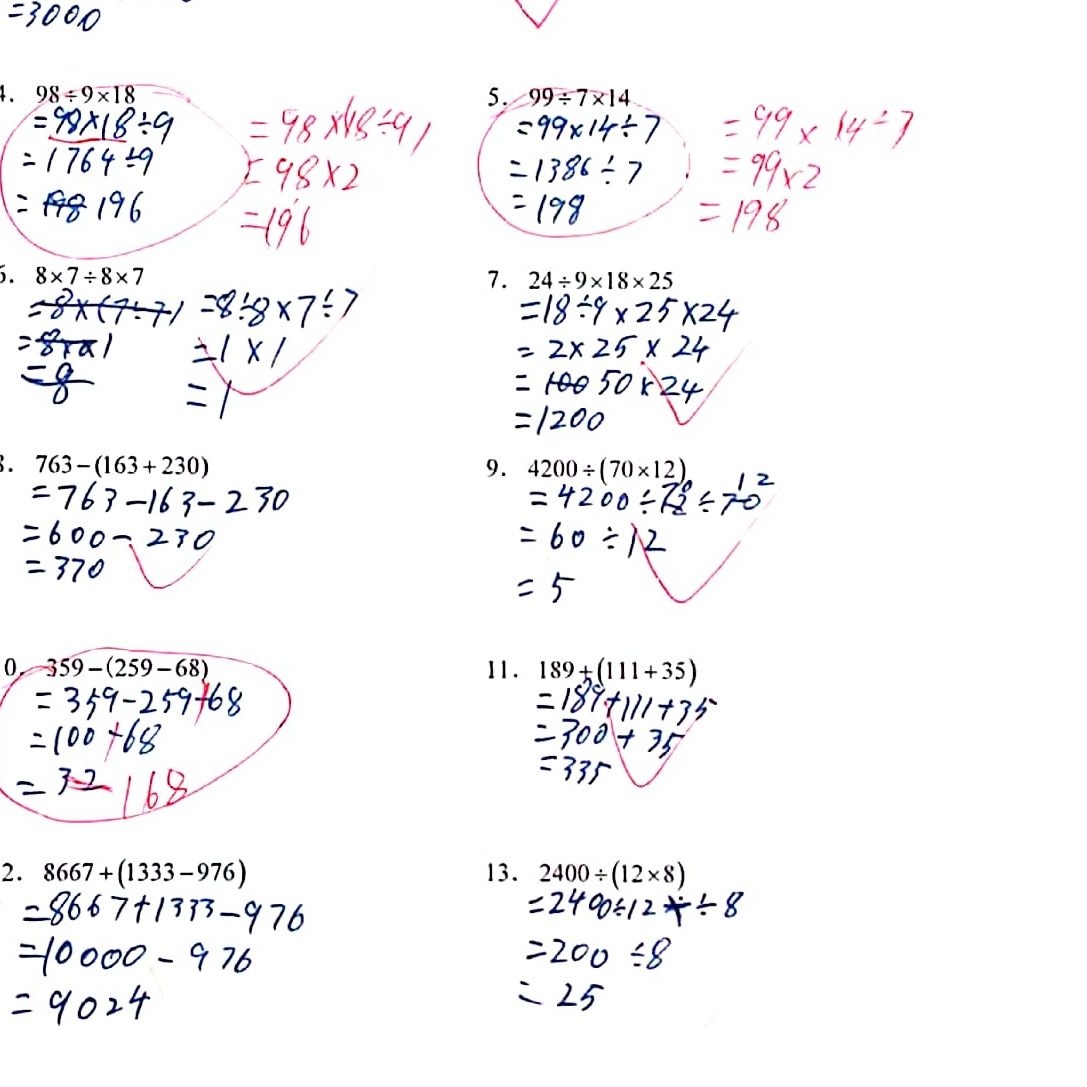 =3000
4. 98÷9×18
=98×18÷9
=1764÷9
=198 196
=98×(18÷9)
=98×2
=196
5. 99÷7×14
=99×14÷7
=1386÷7
=198
=99×14÷7
=99×2
=198
6. 8×7÷8×7
=8×(7÷7)
=8×1
=8
=8÷8×7÷7
=1×1
=1
7. 24÷9×18×25
=18÷9×25×24
=2×25×24
=100 50×24
=1200
8. 763−(163+230)
=763−163−230
=600−230
=370
9. 4200÷(70×12)
=4200÷70÷12
=60÷12
=5
0. 359−(259−68)
=359−259+68
=100+68
=32 168
11. 189+(111+35)
=189+111+35
=300+35
=335
2. 8667+(1333−976)
=8667+1333−976
=10000−976
=9024
13. 2400÷(12×8)
=2400÷12÷8
=200÷8
=25